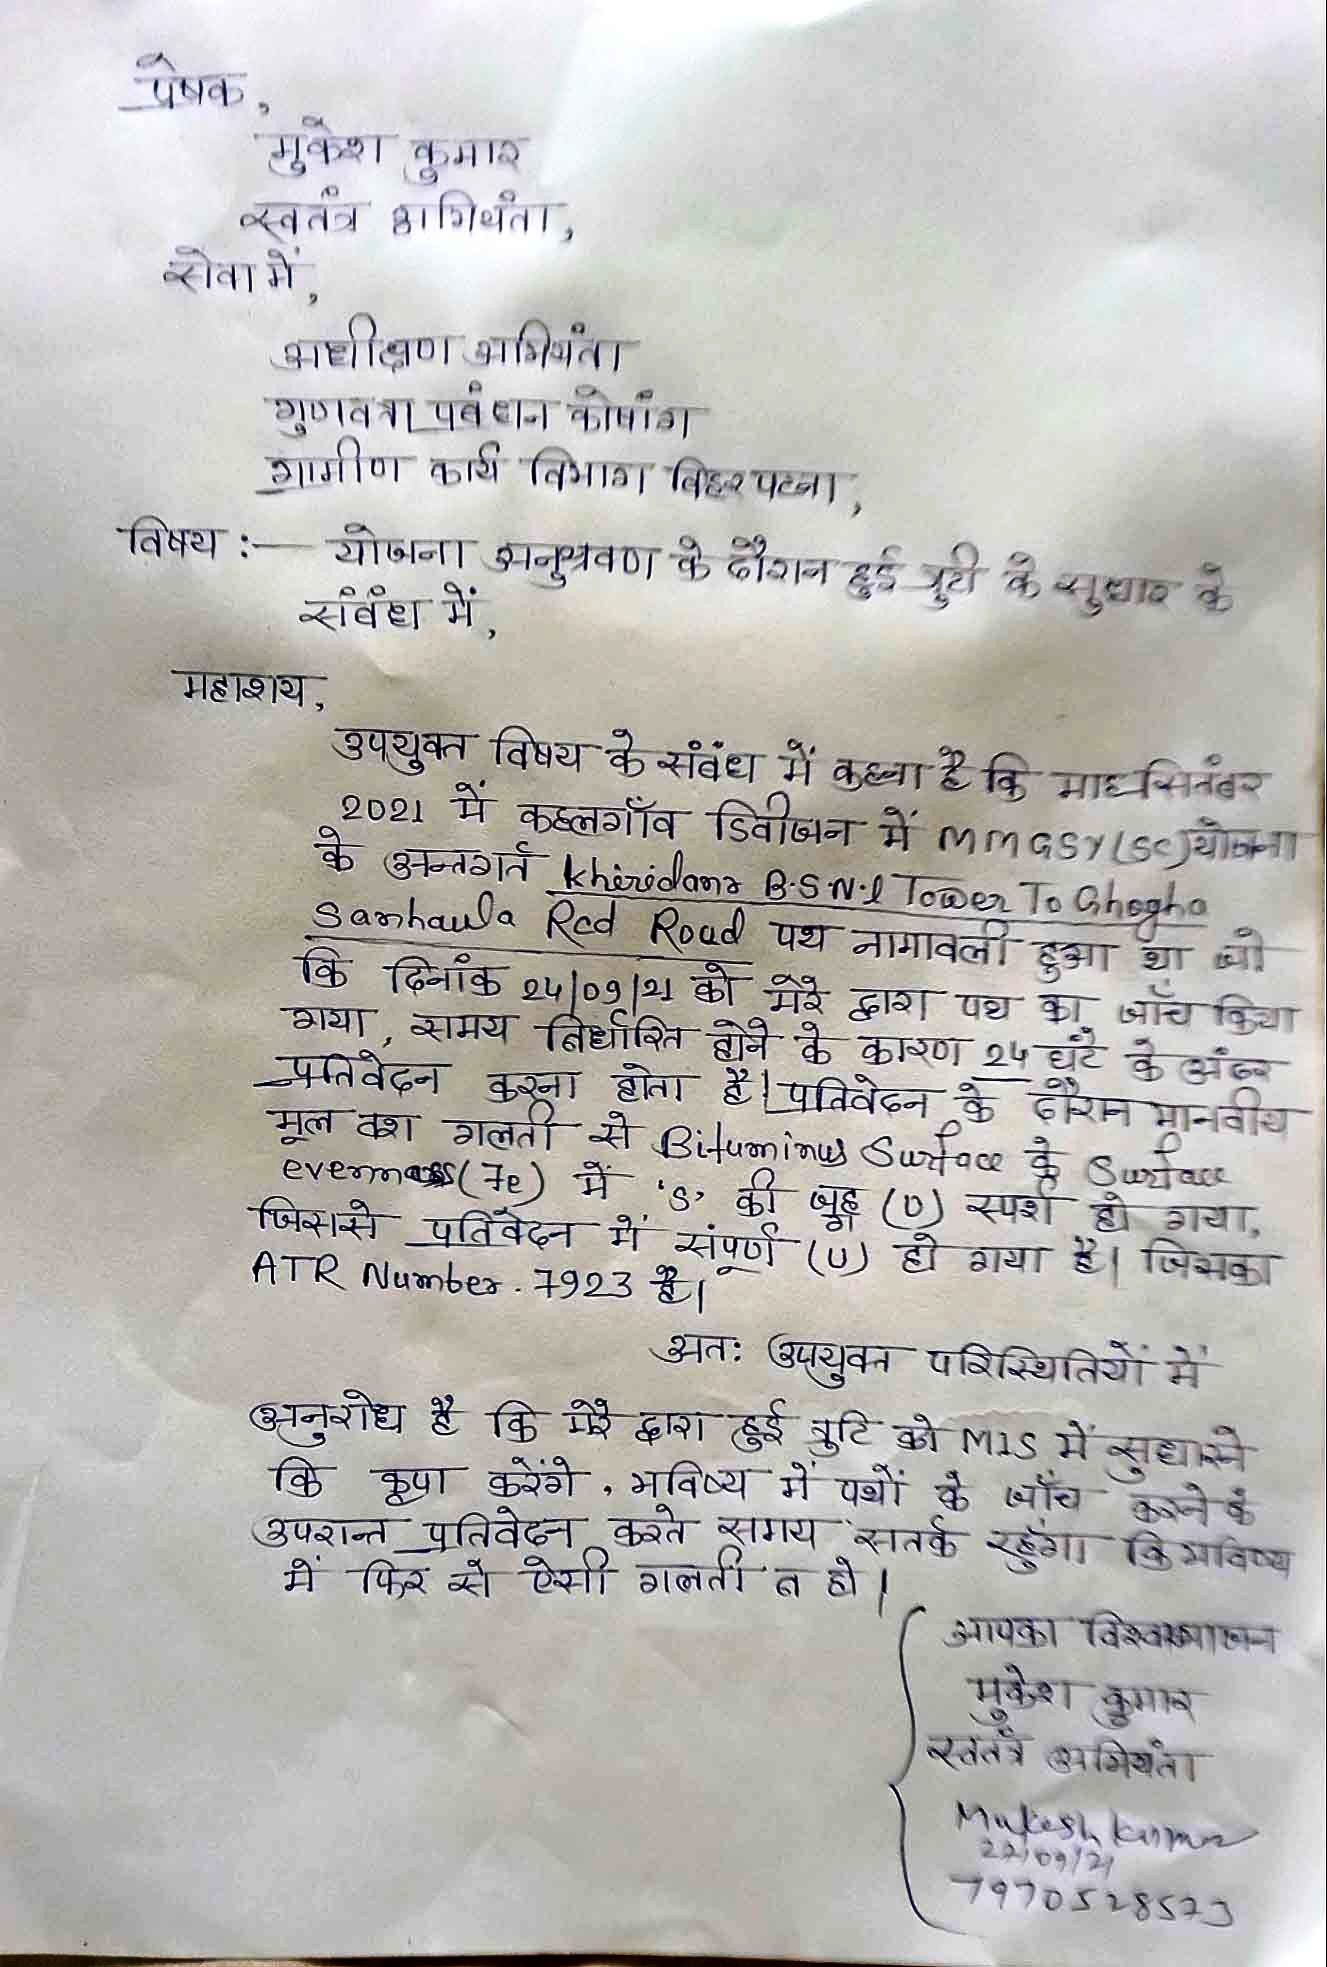 प्रेषक,
मुकेश कुमार
स्वतंत्र अभियंता,
सेवा में,
अधीक्षण अभियंता
गुणवत्ता प्रबंधन कोषांग
ग्रामीण कार्य विभाग बिहार पटना,
विषय :— योजना अनुश्रवण के दौरान हुई त्रुटी के सुधार के
संबंध में,
महाशय,
उपयुक्त विषय के संबंध में कहना है कि माह सितंबर
2021 में कहलगाँव डिवीजन में MMGSY(SC) योजना
के अन्तगर्त Khiridanr B.S.N.l Tower To Ghogha
Sanhaula Rcd Road पथ नामावली हुआ था जो
कि दिनांक 24/09/21 को मेरे द्वारा पथ का जाँच किया
गया, समय निर्धारित होने के कारण 24 घंटे के अंदर
प्रतिवेदन करना होता है। प्रतिवेदन के दौरान मानवीय
भूल वश गलती से Bituminus Surface के Surface
(7e) में 'S' की जगह (U) स्पर्श हो गया,
जिससे प्रतिवेदन में संपूर्ण (U) हो गया है। जिसका
ATR Number. 7923 है।
अतः उपयुक्त परिस्थितियों में
अनुरोध है कि मेरे द्वारा हुई त्रुटि को MIS में सुधारने
कि कृपा करेंगे, भविष्य में पथों के जाँच करने के
उपरान्त प्रतिवेदन करते समय सतर्क रहुँगा कि भविष्य
में फिर से ऐसी गलती न हो।
आपका विश्वासभाजन
मुकेश कुमार
स्वतंत्र अभियंता
Mukesh Kumar
22/09/21
7970528573